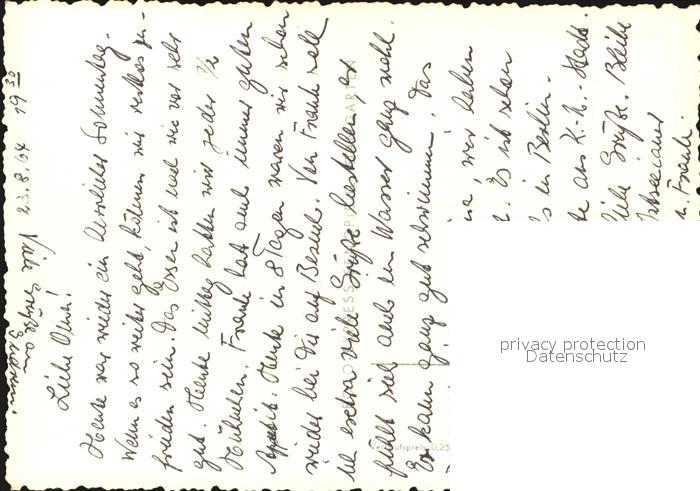 23.8.64 19 30
Viele Grüße an
Liebe Omi!
Heute war wieder ein herrlicher Sonnentag.
Wenn es so weiter geht, können wir restlos zu-
frieden sein. Das Essen ist nach wie vor sehr
gut. Heute mittag hatten wir jeder 1/2
Hühnchen. Frank hat auch immer guten
Appetit. Heute in 8 Tagen waren wir schon
wieder bei Dir auf Besuch. Von Frank soll
ich extra viele Grüße bestellen, er
fühlt sich auch im Wasser ganz wohl.
Er kann ganz gut schwimmen. Das
wir haben
Es ist schon
in Berlin.
aus K.-M.-Stadt.
Grüße. Bleibe
Frank.
Verkaufspreis 0,25
privacy protection
Datenschutz